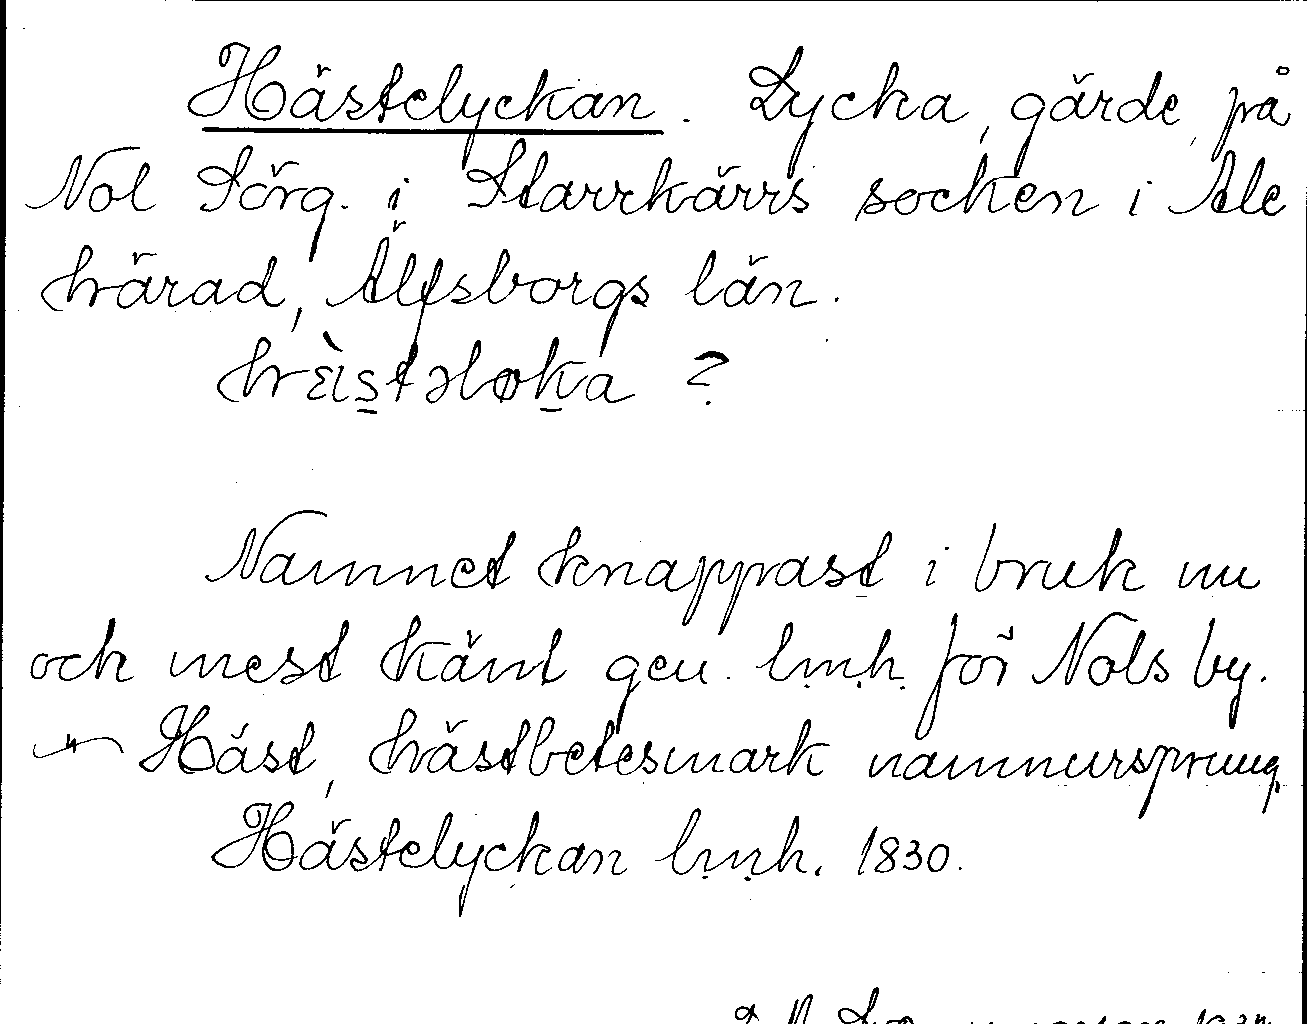 Hästelyckan. Lycka, gärde, på
Nol Sörg. i Starrkärrs socken i Ale
härad, Älfsborgs län.
hὲistəløka ?
Namnet knappast i bruk nu
och mest känt gen. lmh. för Nols by.
Häst, hästbetesmark namnursprung.
Hästelyckan lmh. 1830.